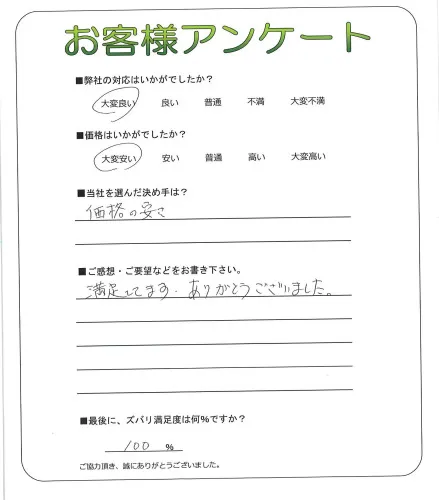 お客様アンケート
■弊社の対応はいかがでしたか？
大変良い 良い 普通 不満 大変不満
■価格はいかがでしたか？
大変安い 安い 普通 高い 大変高い
■当社を選んだ決め手は？
価格の安さ
■ご感想・ご要望などをお書き下さい。
満足してます．ありがとうございました。
■最後に、ズバリ満足度は何%ですか？
100 %
ご協力頂き、誠にありがとうございました。